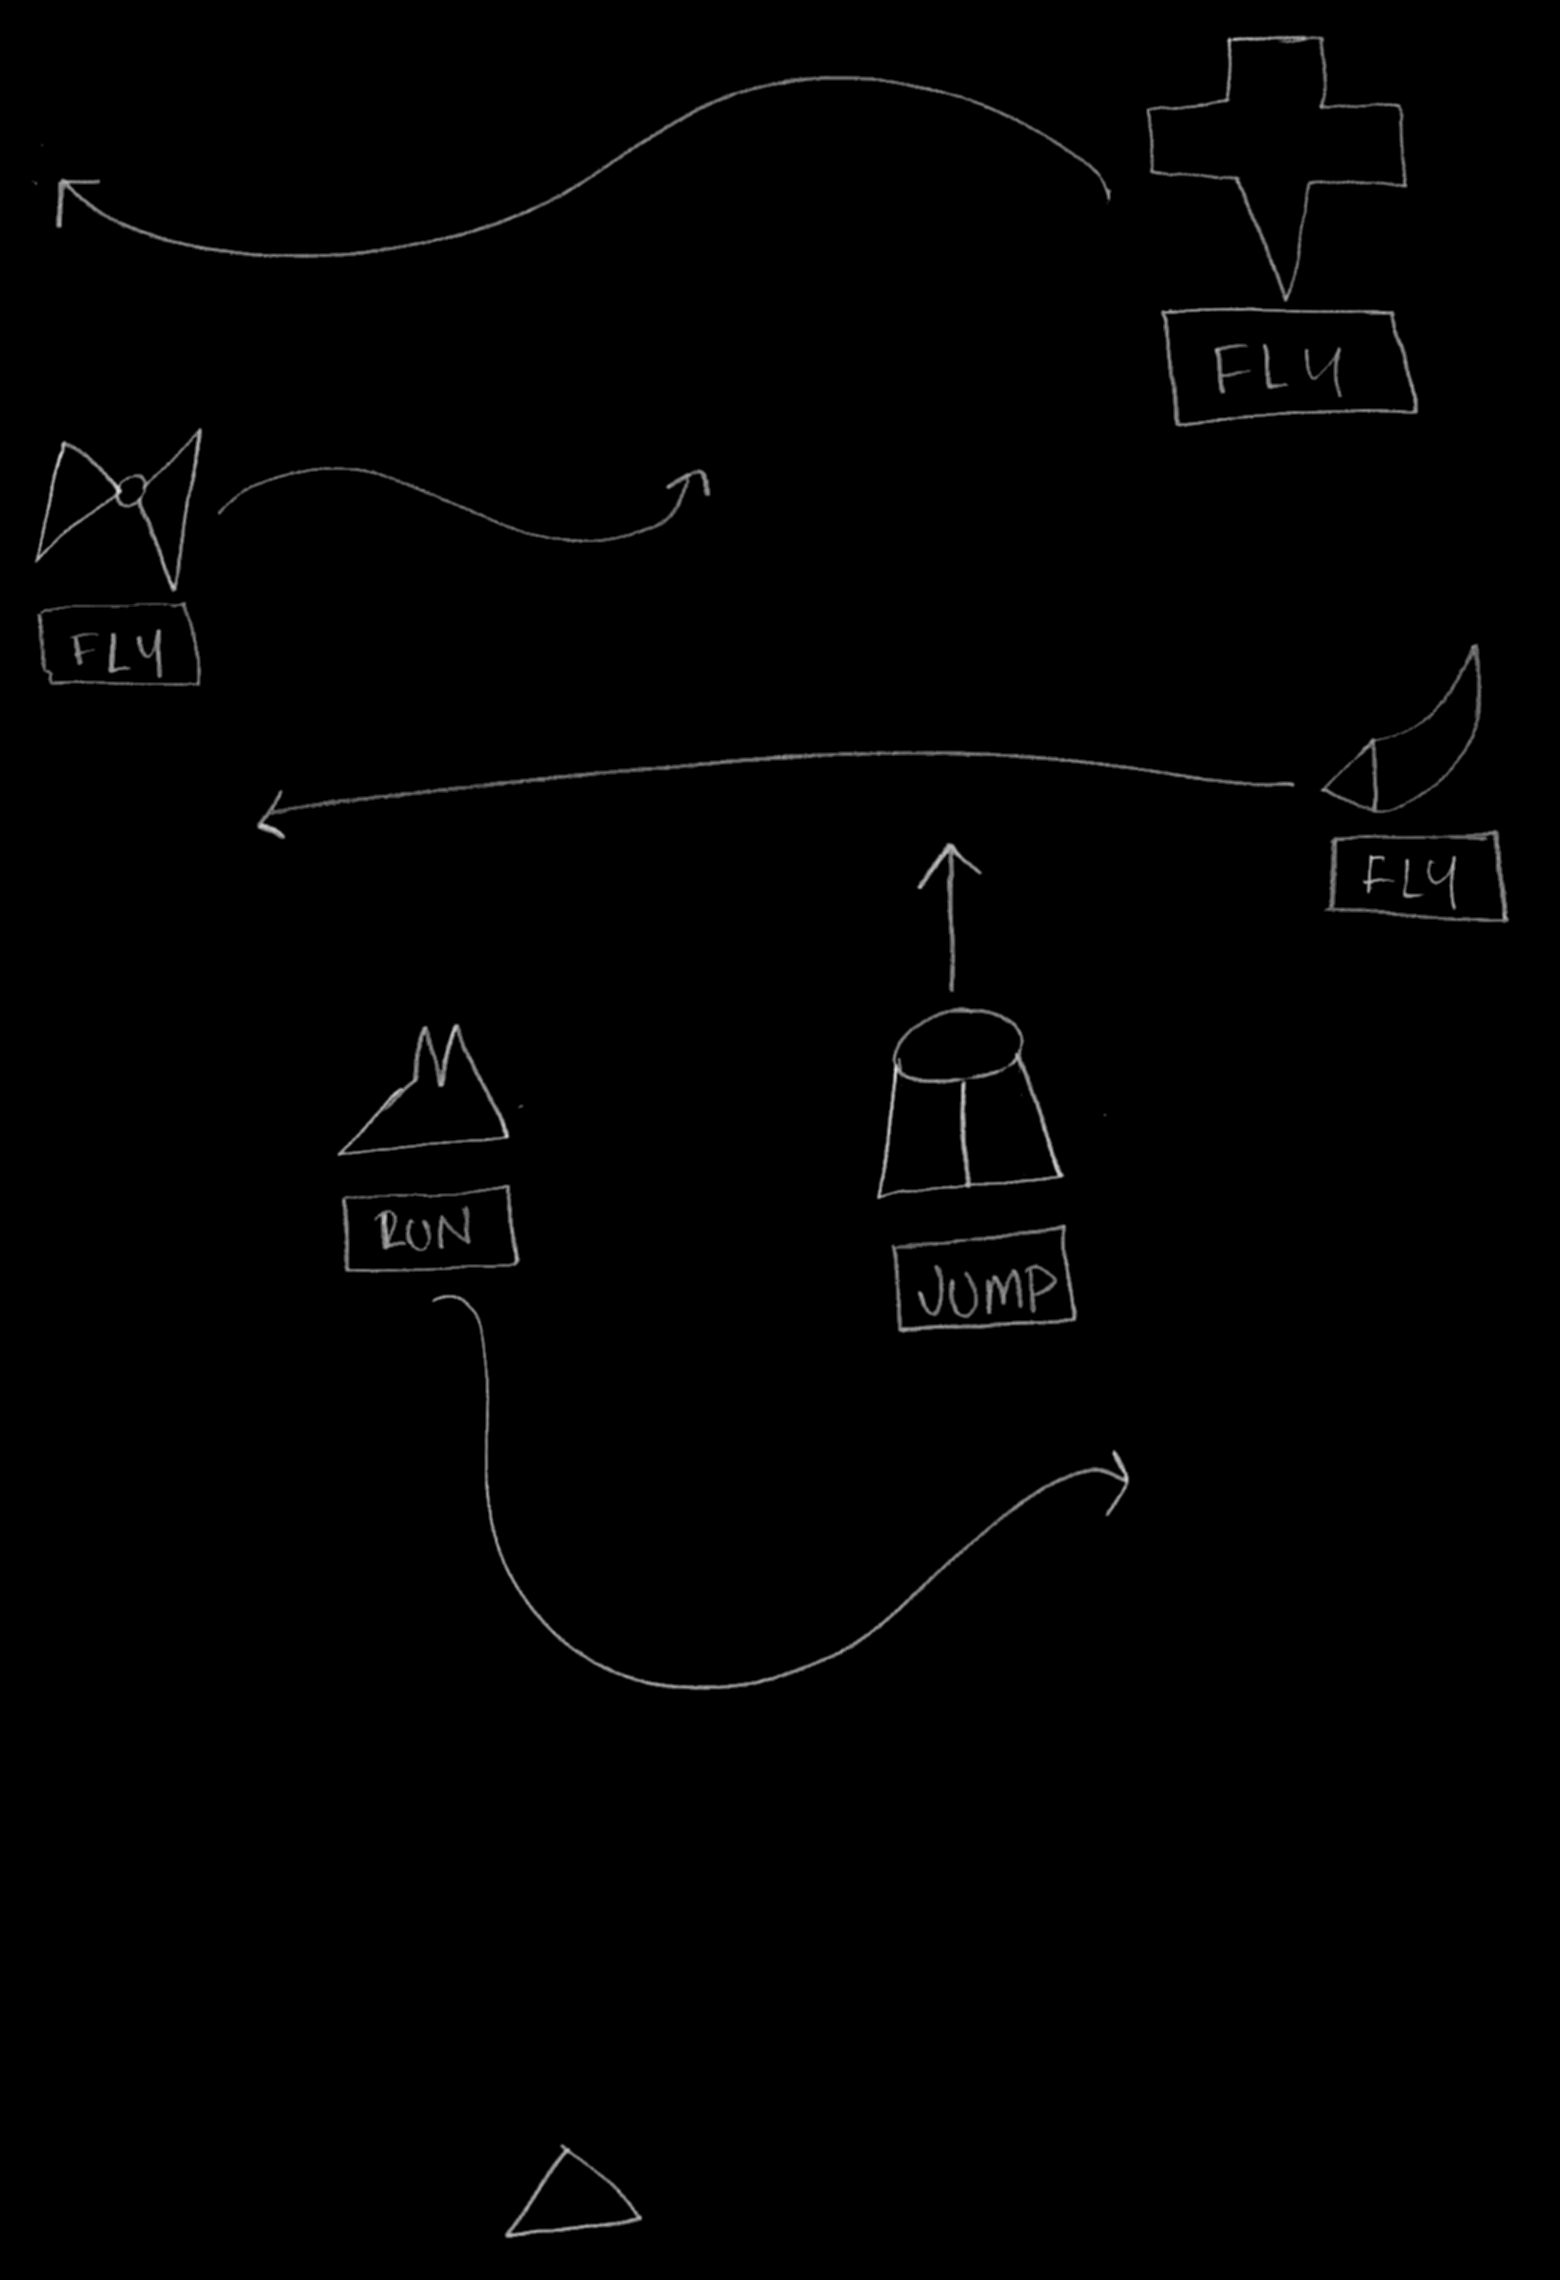 FLY
FLY
FLY
RUN
JUMP